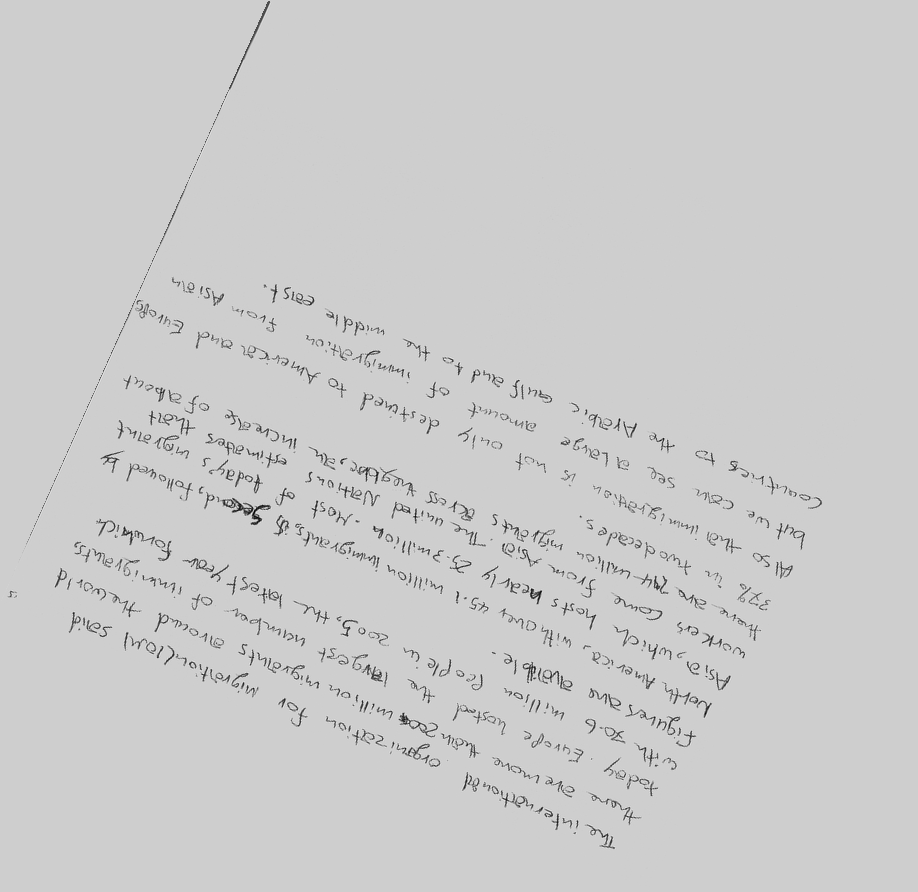 The international organization for migration(IOM) said
there are more than 200 million migrants around the world
today. Europe hosted the largest number of immigrants,
with 70.6 million people in 2005, the latest year for which
Figures are avalible.
North America, with over 45.1 million immigrants, is second, followed by
Asia, which hosts nearly 25.3 million. Most of today's migrant
workers come from Asia. The united Nations estimates that
there are 214 million migrants across the globe, an increase of about
37% in two decades.
Also thai immigration is not only destined to America and Europe
but we can see a large amount of immigration from Asian
Countries to the Arabic gulf and to the middle east.